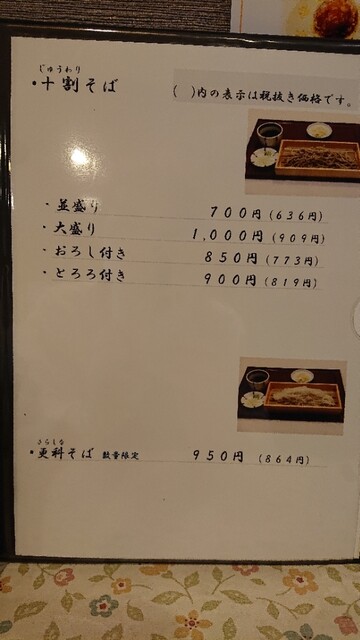 じゅうわり
・十割そば
( )内の表示は税抜き価格です。
・並盛り 700円(636円)
・大盛り 1,000円(909円)
・おろし付き 850円(773円)
・とろろ付き 900円(819円)
さらしな
・更科そば 数量限定 950円(864円)